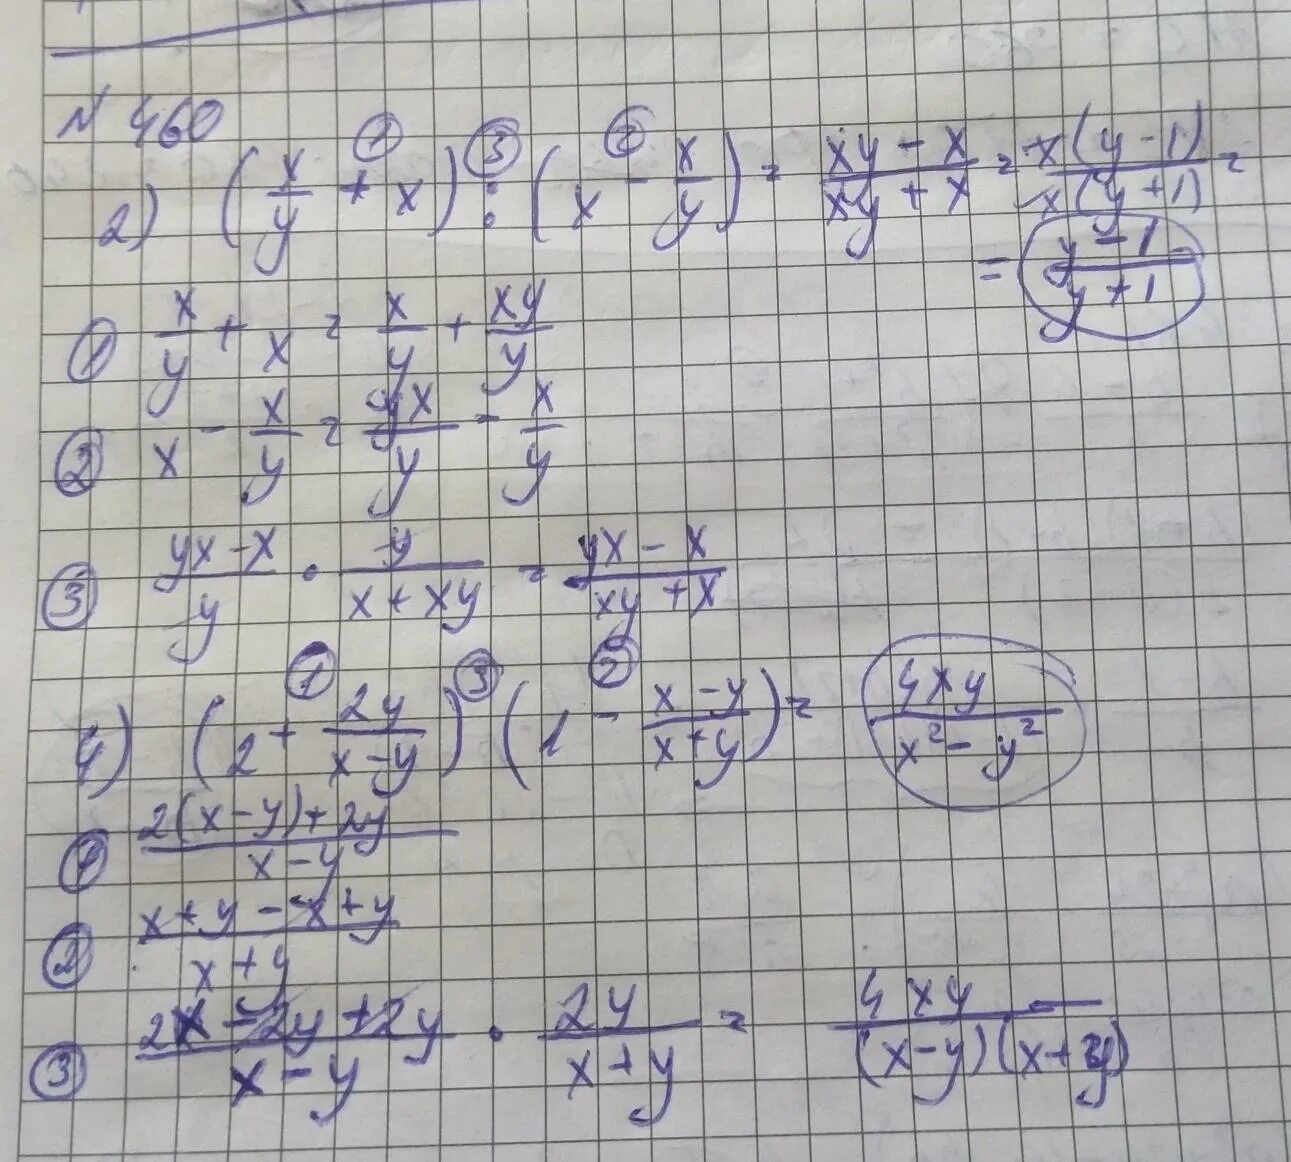 N 460
2) (x/y + x) : (x - x/y) = (xy - x)/(xy + x) = x(y - 1)/x(y + 1) =
= (y - 1)/(y + 1)
① x/y + x = x/y + xy/y
② x - x/y = yx/y - x/y
③ (yx - x)/y · y/(x + xy) = (yx - x)/(xy + x)
4) (2 + 2y/(x - y)) (1 - (x - y)/(x + y)) = 4xy/(x² - y²)
① (2(x - y) + 2y)/(x - y)
② (x + y - x + y)/(x + y)
③ (2x - 2y + 2y)/(x - y) · 2y/(x + y) = 4xy/((x - y)(x + y))